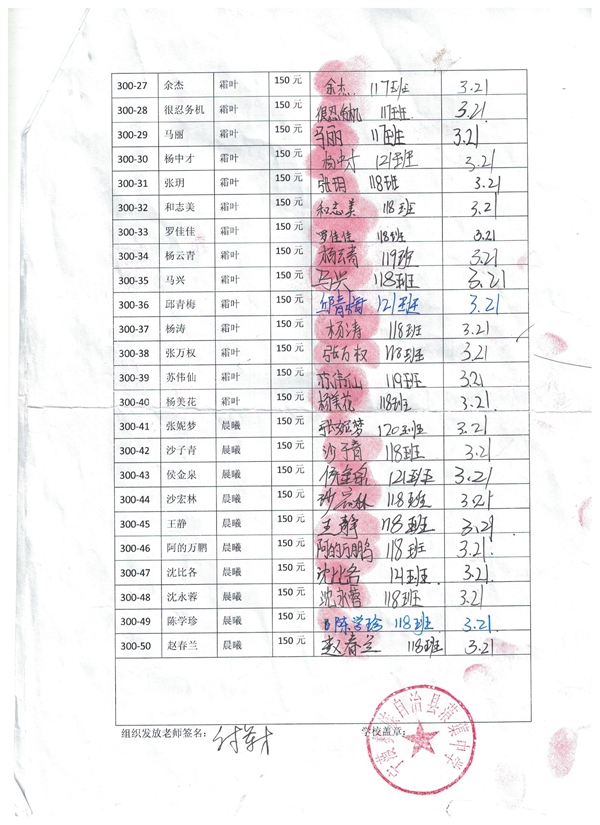 300-27 余杰 霜叶 150 元 余杰 117班 3.21
300-28 很忍务机 霜叶 150 元 很忍务机 117班 3.21
300-29 马丽 霜叶 150 元 马丽 117班 3.21
300-30 杨中才 霜叶 150 元 杨中才 121班 3.21
300-31 张玥 霜叶 150 元 张玥 118班 3.21
300-32 和志美 霜叶 150 元 和志美 118班 3.21
300-33 罗佳佳 霜叶 150 元 罗佳佳 118班 3.21
300-34 杨云青 霜叶 150 元 杨云青 119班 3.21
300-35 马兴 霜叶 150 元 马兴 118班 3.21
300-36 邱青梅 霜叶 150 元 邱青梅 121班 3.21
300-37 杨涛 霜叶 150 元 杨涛 118班 3.21
300-38 张万权 霜叶 150 元 张万权 118班 3.21
300-39 苏伟仙 霜叶 150 元 苏伟仙 119班 3.21
300-40 杨美花 霜叶 150 元 杨美花 118班 3.21
300-41 张妮梦 晨曦 150元 张妮梦 120班 3.21
300-42 沙子青 晨曦 150元 沙子青 118班 3.21
300-43 侯金泉 晨曦 150元 侯金泉 121班 3.21
300-44 沙宏林 晨曦 150元 沙宏林 118班 3.21
300-45 王静 晨曦 150元 王静 118班 3.21
300-46 阿的万鹏 晨曦 150元 阿的万鹏 118班 3.21
300-47 沈比各 晨曦 150元 沈比各 121班 3.21
300-48 沈永蓉 晨曦 150元 沈永蓉 118班 3.21
300-49 陈学珍 晨曦 150元 陈学珍 118班 3.21
300-50 赵春兰 晨曦 150元 赵春兰 118班 3.21
组织发放老师签名： 学校盖章：
自治县 中学